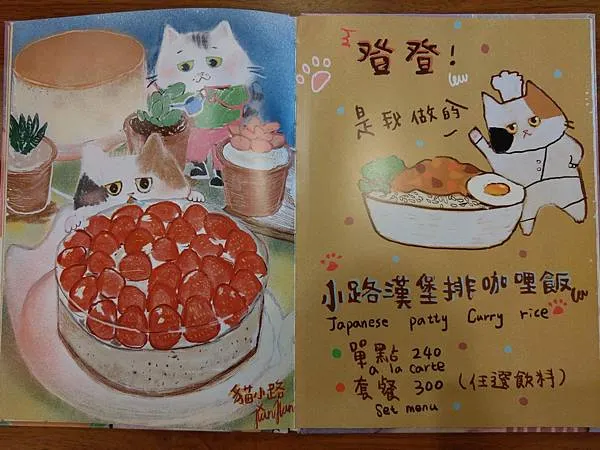 貓小路
登登！
是我做的
小路漢堡排咖哩飯
Japanese patty Curry rice
單點 240
a la carte
套餐 300 (任選飲料)
Set menu